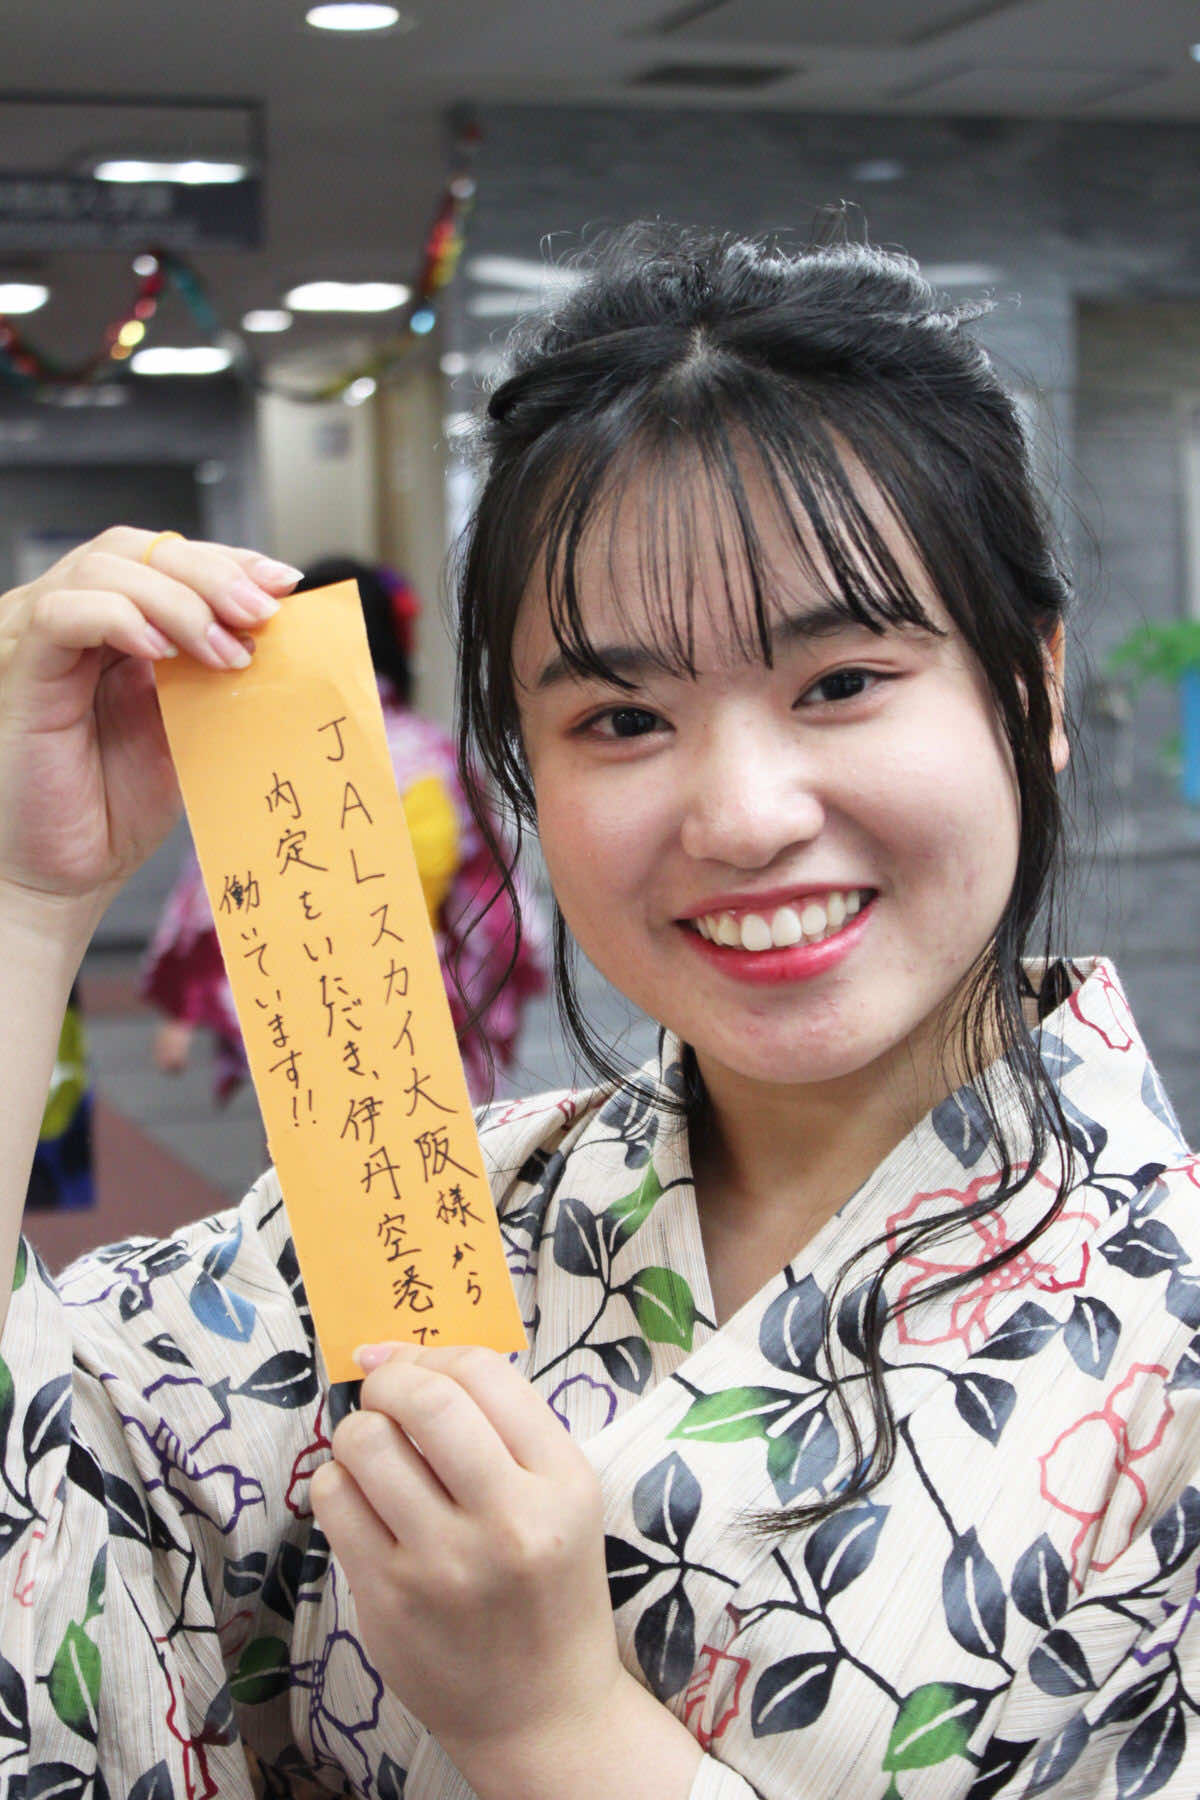 JALスカイ大阪様から
内定をいただき、伊丹空港で
働いています!!